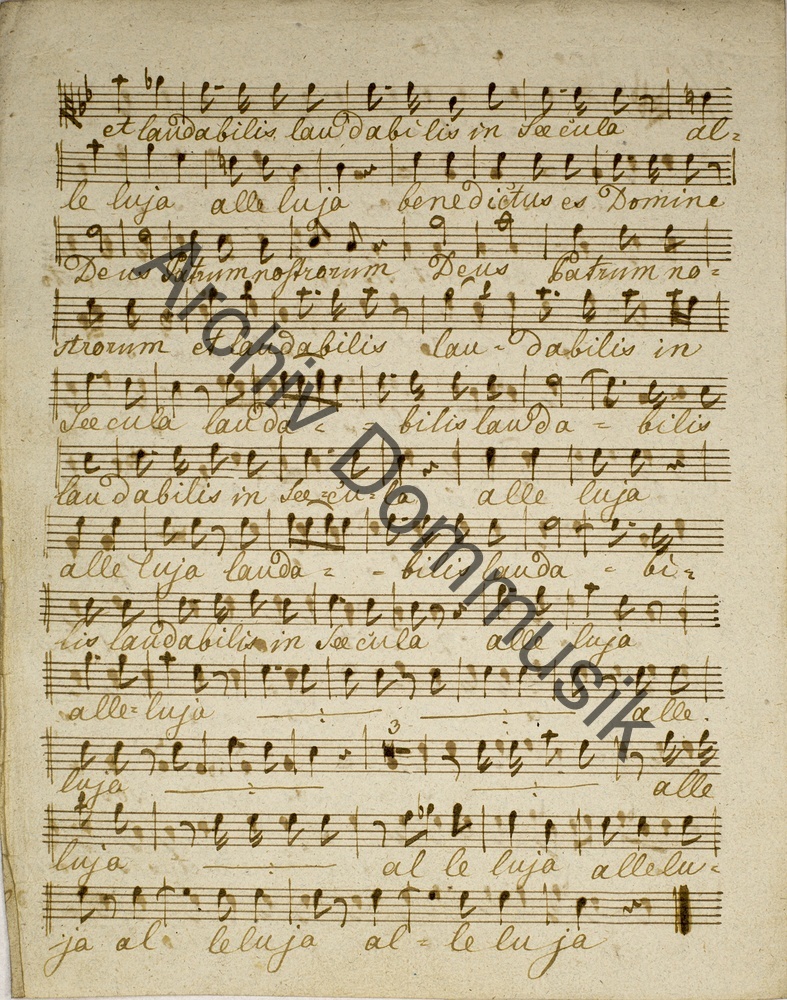 et laudabilis laudabilis in sæcula al=
le luja alle luja benedictus es Domine
Deus Patrum nostrorum Deus Patrum no=
strorum et laudabilis lau - dabilis in
sæcula lauda - - bilis lauda = bilis
laudabilis in sæ=cu=la alle luja
alle luja lauda = - bilis lauda - bi=
lis laudabilis in sæcula alle luja
alle=luja alle
3
luja alle
luja al le luja allelu=
ja al leluja al=le lu ja
Archiv Dommusik